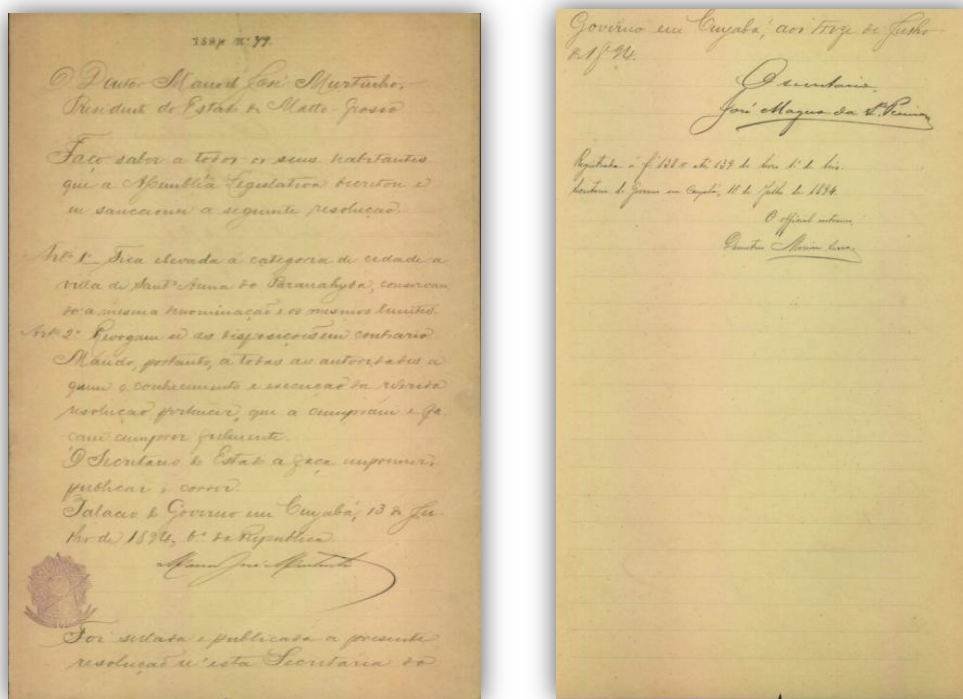 1894 nº 79.
O Doutor Manoel José Murtinho,
Presidente do Estado de Matto-Grosso
Faço saber a todos os seus habitantes
que a Assembléa Legislativa decretou e
eu sanccionei a seguinte resolução
Artº 1º Fica elevada á categoria de cidade a
villa de Sant'Anna do Paranahyba, conservan
do a mesma denominação e os mesmos limites.
Artº 2º Revogam se as disposições em contrario
Mando, portanto, a todas as autoridades a
quem o conhecimento e execução da referida
resolução pertencer, que a cumpram e fa-
çam cumprir fielmente.
O Secretario do Estado a faça imprimir,
publicar e correr.
Palacio do Governo em Cuyabá, 13 de Ju-
lho de 1894, 6º da Republica.
Manoel José Murtinho
Foi sellada e publicada a presente
resolução n'esta Secretaria do
Governo em Cuyabá, aos treze de Julho
de 1894.
O secretario,
José Magno da Sª Pereira
Registrada á fl 138 até 139 do livro 1º de leis.
Secretaria do Governo em Cuyabá, 18 de Julho de 1894.
O official